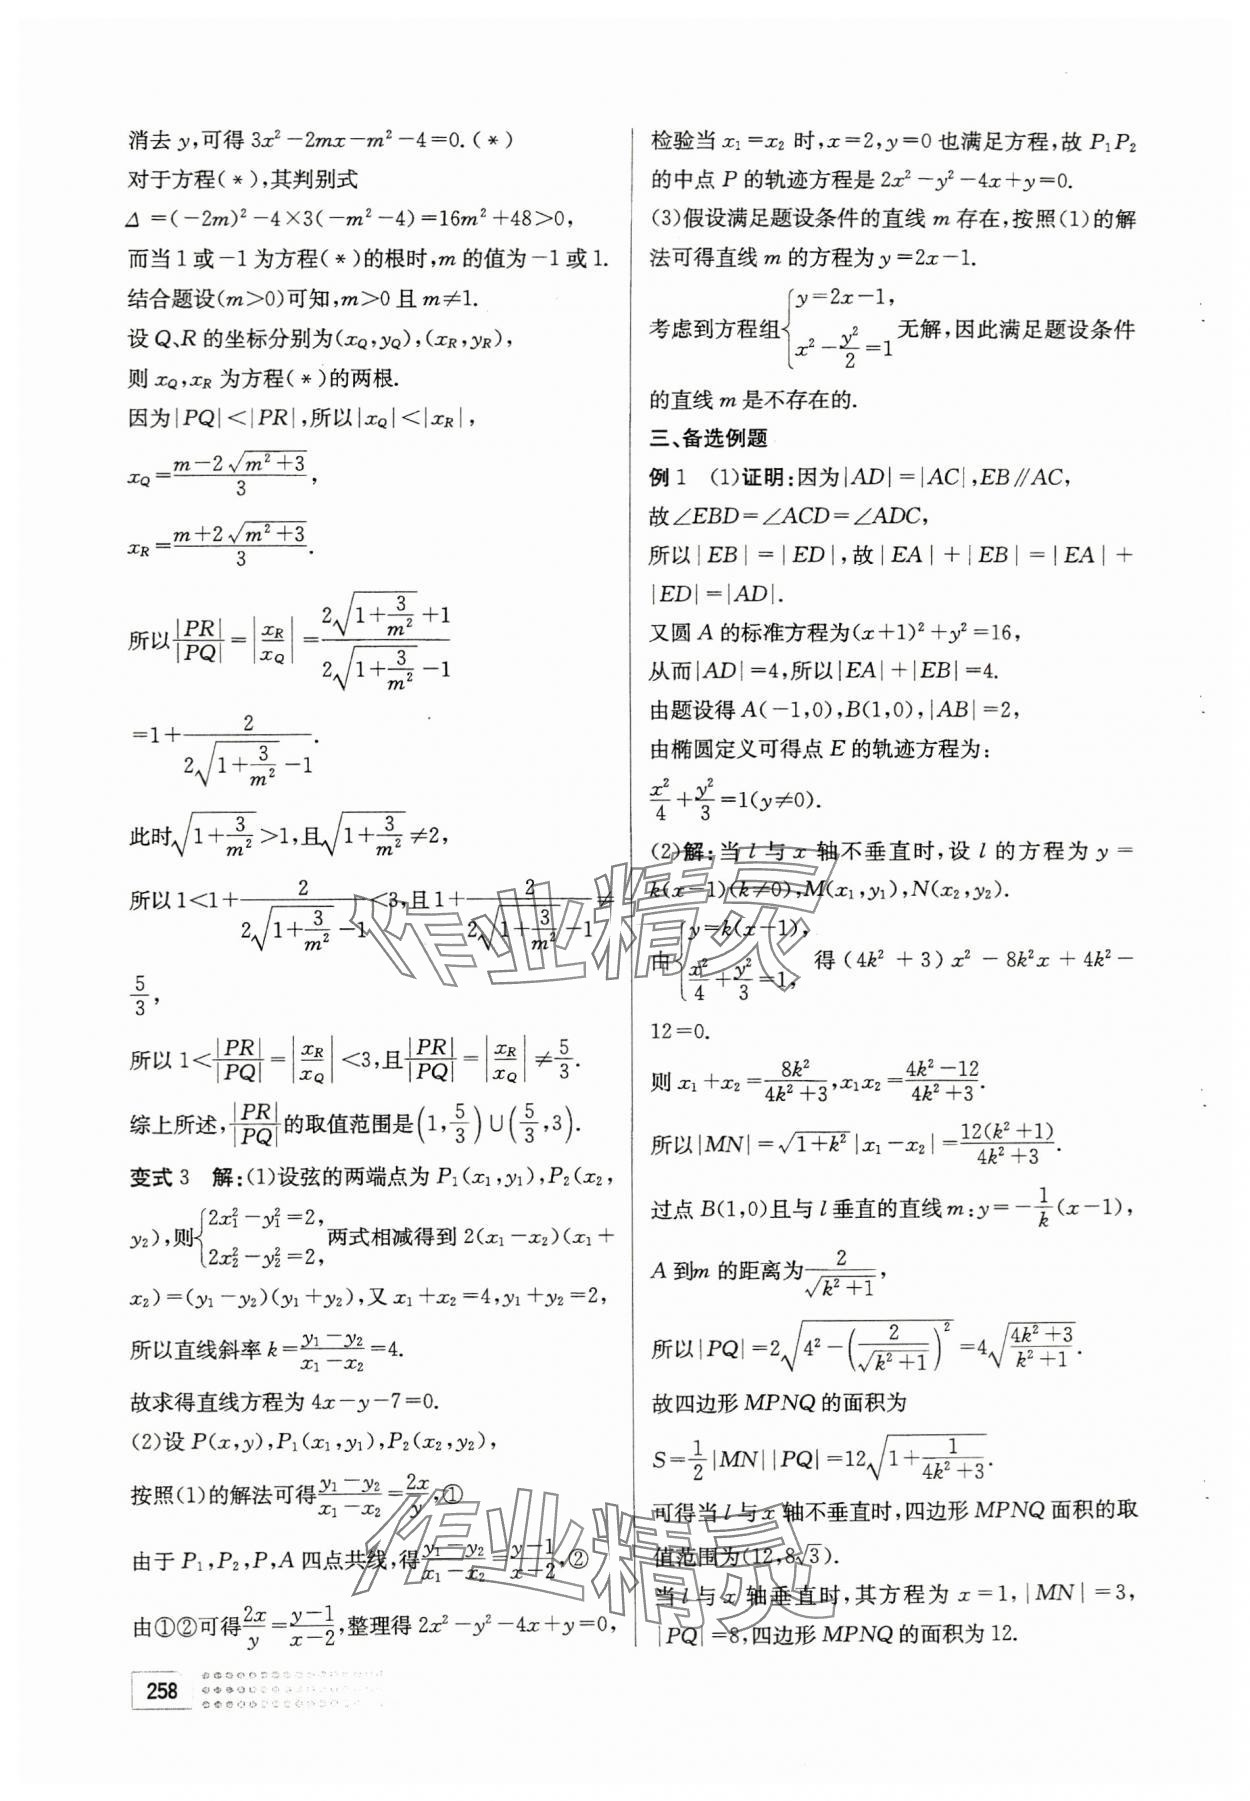 消去 y,可得 3x²－2mx－m²－4＝0.(＊)
对于方程(＊),其判别式
Δ＝(－2m)²－4×3(－m²－4)＝16m²＋48＞0,
而当 1 或－1 为方程(＊)的根时,m 的值为－1 或 1.
结合题设(m＞0)可知,m＞0 且 m≠1.
设 Q、R 的坐标分别为(x_Q,y_Q),(x_R,y_R),
则 x_Q,x_R 为方程(＊)的两根.
因为|PQ|＜|PR|,所以|x_Q|＜|x_R|,
x_Q＝(m－2√(m²＋3))/3,
x_R＝(m＋2√(m²＋3))/3.
所以|PR|/|PQ|＝|x_R/x_Q|＝(2√(1＋3/m²)＋1)/(2√(1＋3/m²)－1)
＝1＋2/(2√(1＋3/m²)－1).
此时√(1＋3/m²)＞1,且√(1＋3/m²)≠2,
所以 1＜1＋2/(2√(1＋3/m²)－1)＜3,且 1＋2/(2√(1＋3/m²)－1)≠
5/3,
所以 1＜|PR|/|PQ|＝|x_R/x_Q|＜3,且|PR|/|PQ|＝|x_R/x_Q|≠5/3.
综上所述,|PR|/|PQ|的取值范围是(1,5/3)∪(5/3,3).
变式 3 解:(1)设弦的两端点为 P₁(x₁,y₁),P₂(x₂,
y₂),则{2x₁²－y₁²＝2, 2x₂²－y₂²＝2, 两式相减得到 2(x₁－x₂)(x₁＋
x₂)＝(y₁－y₂)(y₁＋y₂),又 x₁＋x₂＝4,y₁＋y₂＝2,
所以直线斜率 k＝(y₁－y₂)/(x₁－x₂)＝4.
故求得直线方程为 4x－y－7＝0.
(2)设 P(x,y),P₁(x₁,y₁),P₂(x₂,y₂),
按照(1)的解法可得(y₁－y₂)/(x₁－x₂)＝2x/y,①
由于 P₁,P₂,P,A 四点共线,得(y₁－y₂)/(x₁－x₂)＝(y－1)/(x－2),②
由①②可得2x/y＝(y－1)/(x－2),整理得 2x²－y²－4x＋y＝0,
258
检验当 x₁＝x₂ 时,x＝2,y＝0 也满足方程,故 P₁P₂
的中点 P 的轨迹方程是 2x²－y²－4x＋y＝0.
(3)假设满足题设条件的直线 m 存在,按照(1)的解
法可得直线 m 的方程为 y＝2x－1.
考虑到方程组{y＝2x－1, x²－y²/2＝1 无解,因此满足题设条件
的直线 m 是不存在的.
三、备选例题
例 1 (1)证明:因为|AD|＝|AC|,EB∥AC,
故∠EBD＝∠ACD＝∠ADC,
所以|EB|＝|ED|,故|EA|＋|EB|＝|EA|＋
|ED|＝|AD|.
又圆 A 的标准方程为(x＋1)²＋y²＝16,
从而|AD|＝4,所以|EA|＋|EB|＝4.
由题设得 A(－1,0),B(1,0),|AB|＝2,
由椭圆定义可得点 E 的轨迹方程为:
x²/4＋y²/3＝1(y≠0).
(2)解:当 l 与 x 轴不垂直时,设 l 的方程为 y＝
k(x－1)(k≠0),M(x₁,y₁),N(x₂,y₂).
由{y＝k(x－1), x²/4＋y²/3＝1, 得(4k²＋3)x²－8k²x＋4k²－
12＝0.
则 x₁＋x₂＝8k²/(4k²＋3),x₁x₂＝(4k²－12)/(4k²＋3).
所以|MN|＝√(1＋k²)|x₁－x₂|＝12(k²＋1)/(4k²＋3).
过点 B(1,0)且与 l 垂直的直线 m:y＝－1/k(x－1),
A 到m 的距离为2/√(k²＋1),
所以|PQ|＝2√(4²－(2/√(k²＋1))²)＝4√((4k²＋3)/(k²＋1)).
故四边形 MPNQ 的面积为
S＝1/2|MN||PQ|＝12√(1＋1/(4k²＋3)).
可得当 l 与 x 轴不垂直时,四边形 MPNQ 面积的取
值范围为(12,8√3).
当 l 与 x 轴垂直时,其方程为 x＝1,|MN|＝3,
|PQ|＝8,四边形 MPNQ 的面积为 12.
作业精灵
作业精灵